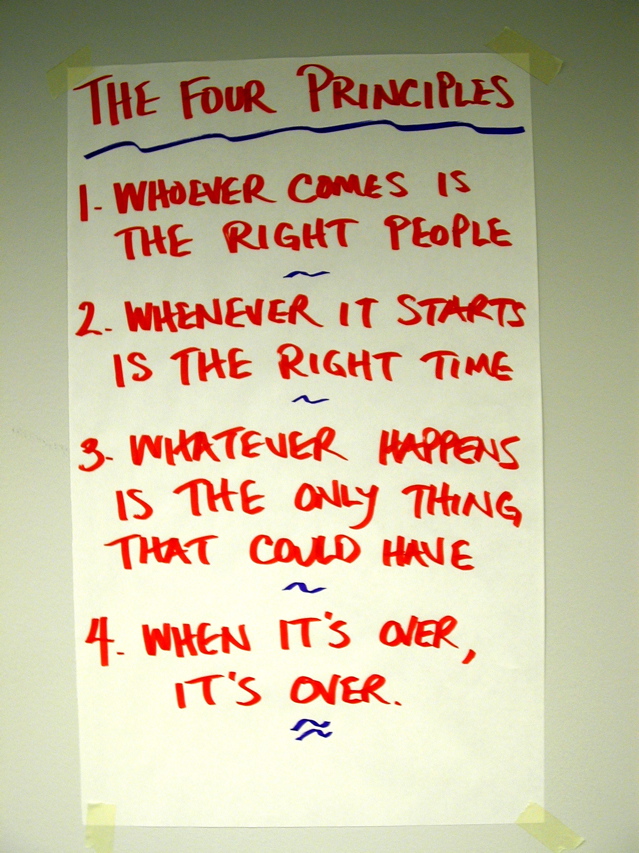 THE FOUR PRINCIPLES
1. WHOEVER COMES IS
THE RIGHT PEOPLE
2. WHENEVER IT STARTS
IS THE RIGHT TIME
3. WHATEVER HAPPENS
IS THE ONLY THING
THAT COULD HAVE
4. WHEN IT'S OVER,
IT'S OVER.